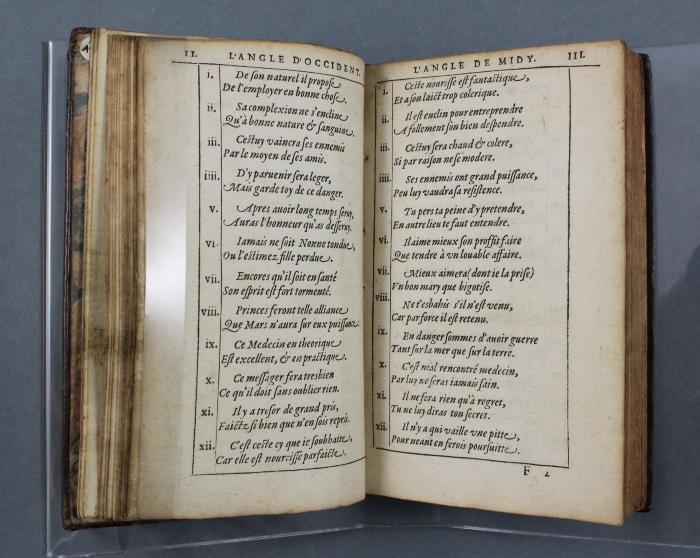 II. L'ANGLE D'OCCIDENT.
i. De son naturel il propose
De l'employer en bonne chose.
ii. Sa complexion ne s'encline
Qu'à bonne nature & sanguine.
iii. Cestuy vaincra ses ennemis
Par le moyen de ses amis.
iiii. D'y paruenir sera leger,
Mais garde toy de ce danger.
v. Apres auoir long temps seruy,
Auras l'honneur qu'as desseruy.
vi. Iamais ne soit Nonne tondue,
Ou l'estimez fille perdue.
vii. Encores qu'il soit en santé
Son esprit est fort tormenté.
viii. Princes feront telle alliance
Que Mars n'aura sur eux puissance
ix. Ce Medecin en theorique
Est excellent, & en practique.
x. Ce messager fera tresbien
Ce qu'il doit sans oublier rien.
xi. Il y a tresor de grand pris,
Faictz si bien que n'en sois repris.
xii. C'est ceste cy que ie soubhaite,
Car elle est nourrisse parfaicte.
L'ANGLE DE MIDY. III.
i. Ceste nourisse est fantastique,
Et a son laict trop colerique.
ii. Il est enclin pour entreprendre
A follement son bien despendre.
iii. Cestuy sera chaud & colere,
Si par raison ne se modere.
iiii. Ses ennemis ont grand puissance,
Peu luy vaudra sa resistence.
v. Tu pers ta peine d'y pretendre,
En autre lieu te faut entendre.
vi. Il aime mieux son proffit faire
Que tendre à vn louable affaire.
vii. Mieux aimera (dont ie la prise)
Vn bon mary que bigotise.
viii. Ne t'esbahis s'il n'est venu,
Car par force il est retenu.
ix. En danger sommes d'auoir guerre
Tant sur la mer que sur la terre.
x. C'est mal rencontré medecin,
Par luy ne seras iamais sain.
xi. Il ne fera rien qu'à regret,
Tu ne luy diras ton secret.
xii. Il n'y a qui vaille vne pitte,
Pour neant en ferois poursuitte.
F 2